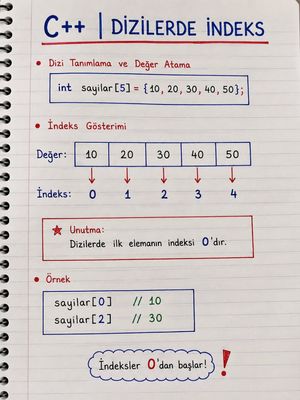 C++ | DİZİLERDE İNDEKS
• Dizi Tanımlama ve Değer Atama
int sayilar[5] = {10, 20, 30, 40, 50};
• İndeks Gösterimi
Değer: 10 20 30 40 50
İndeks: 0 1 2 3 4
★ Unutma:
Dizilerde ilk elemanın indeksi 0'dır.
• Örnek
sayilar[0] // 10
sayilar[2] // 30
İndeksler 0'dan başlar! !